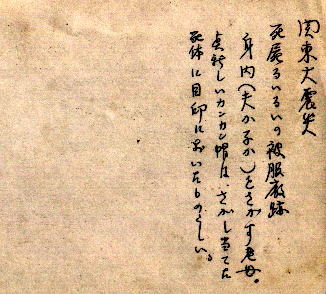 関東大震災
死屍るいるいの被服廠跡
身内(夫か子か)をさがす老母。
真新しいカンカン帽は、さがし当てた
死体に目印においたものらしい。